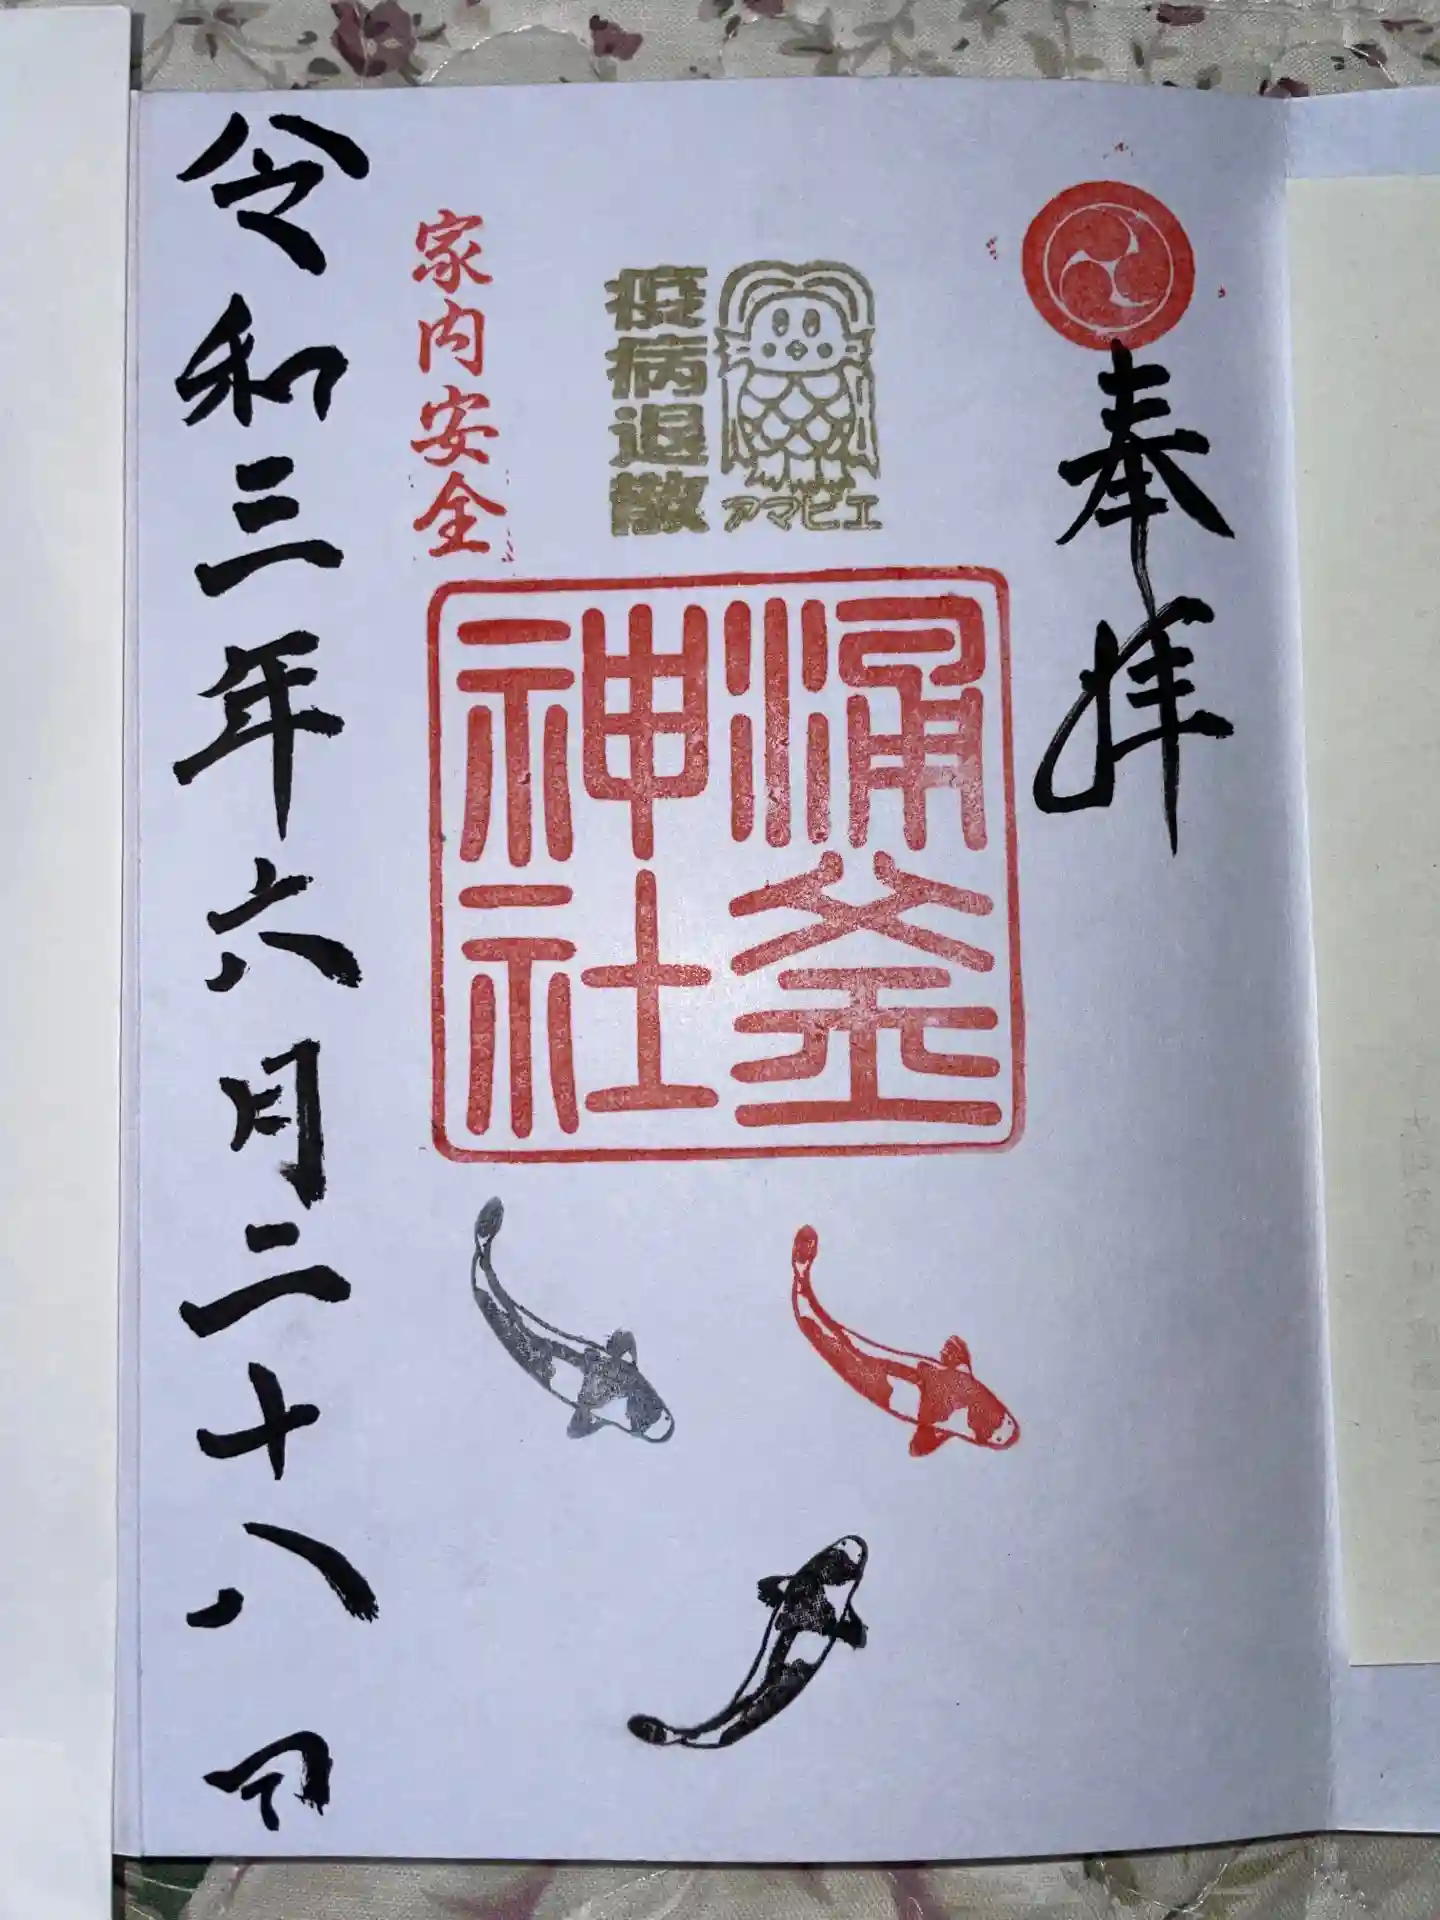 奉拝
アマビエ
疫病退散
涌釜
神社
家内安全
令和三年六月二十八日